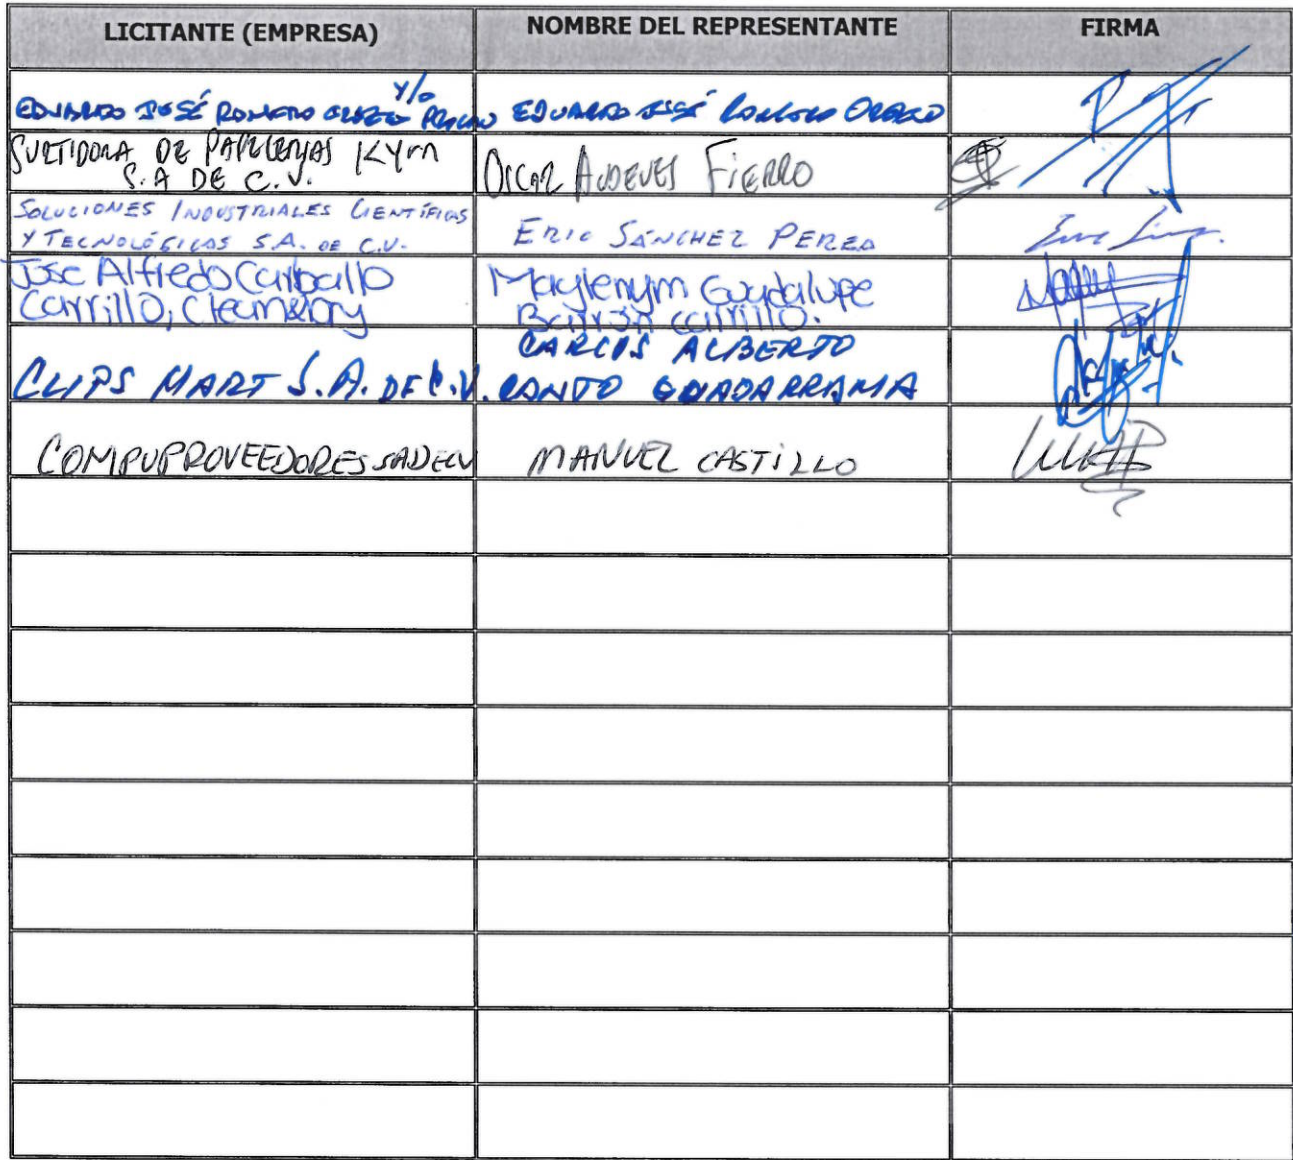 LICITANTE (EMPRESA) NOMBRE DEL REPRESENTANTE FIRMA
Y/o
EDUARDO JOSÉ ROMERO EDUARDO JOSÉ ROMERO
SURTIDORA DE PAPELERIAS KYM
S.A DE C.V. OSCAR AUDEVES FIERRO
SOLUCIONES INDUSTRIALES CIENTÍFICAS
Y TECNOLÓGICAS S.A. DE C.V. ERIC SÁNCHEZ PEREA
Jose Alfredo Carballo Maylenym Guadalupe
Carrillo, Barrón Carrillo.
CARLOS ALBERTO
CLIPS MART S.A. DE C.V. CANTO GUADARRAMA
COMPUPROVEEDORES SADECV MANUEL CASTILLO